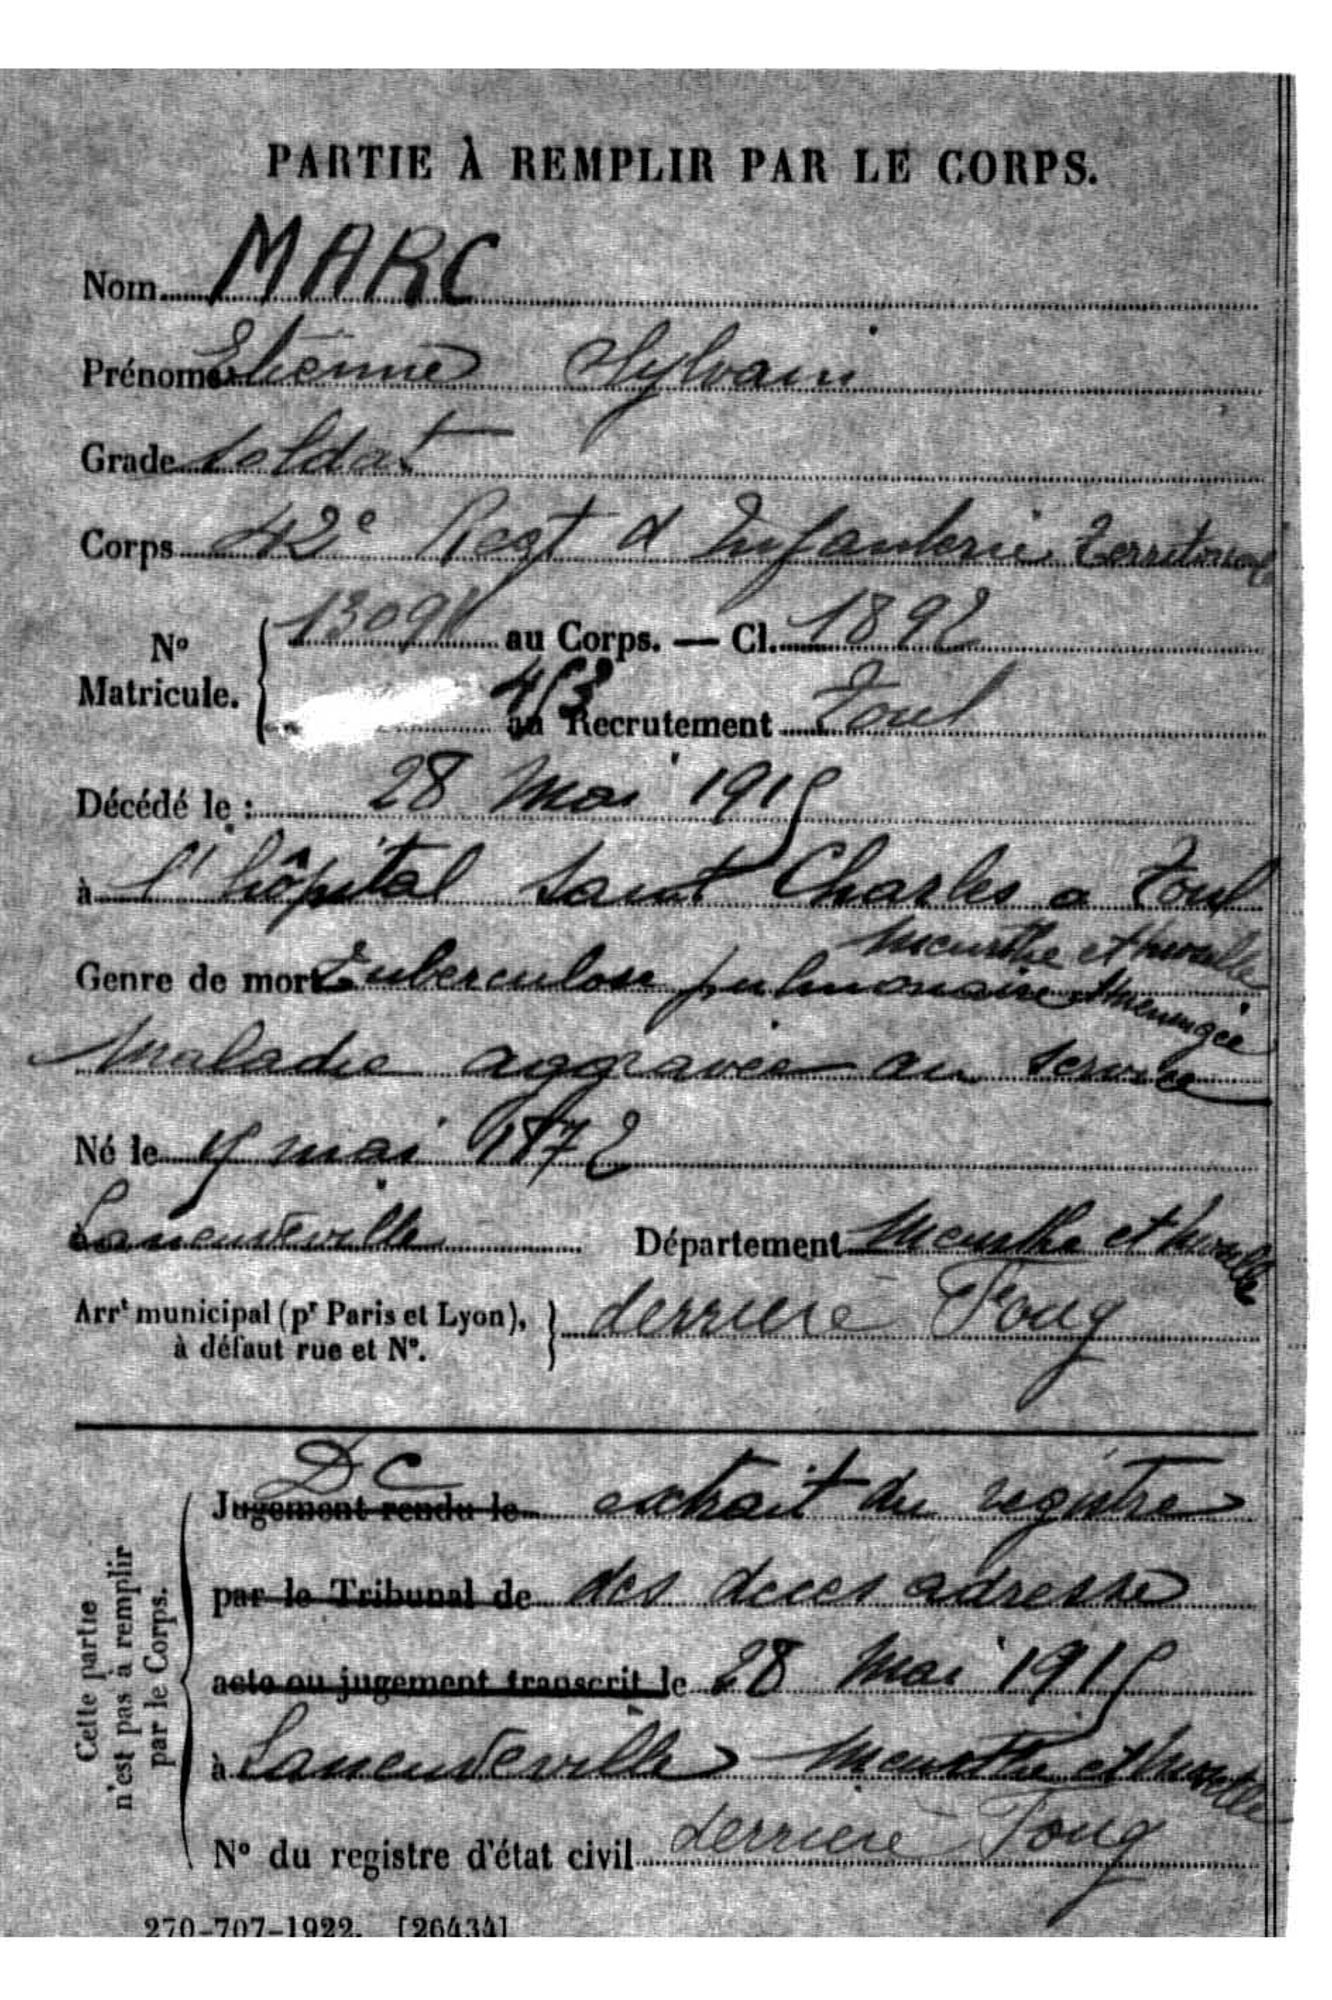 PARTIE À REMPLIR PAR LE CORPS.
Nom MARC
Prénoms Etienne Sylvain
Grade soldat
Corps 42e Regt d Infanterie Territoriale
No Matricule. au Corps. — Cl. 1892
au Recrutement Toul
Décédé le : 28 Mai 1915
à l'hôpital Saint Charles a Toul
Meurthe et Moselle
Genre de mort Tuberculose pulmonaire et meningée
Maladie aggravée au service
Né le mai 1872
à Laneuveville Département Meurthe et Moselle
Arrt municipal (pr Paris et Lyon), à défaut rue et No. derriere Foug
Cette partie n'est pas à remplir par le Corps.
DC
Jugement rendu le extrait du registre
par le Tribunal de des deces adresse
acte ou jugement transcrit le 28 Mai 1915
à Laneuveville Meurthe et Moselle
No du registre d'état civil derriere Foug
270-707-1922. [26434]